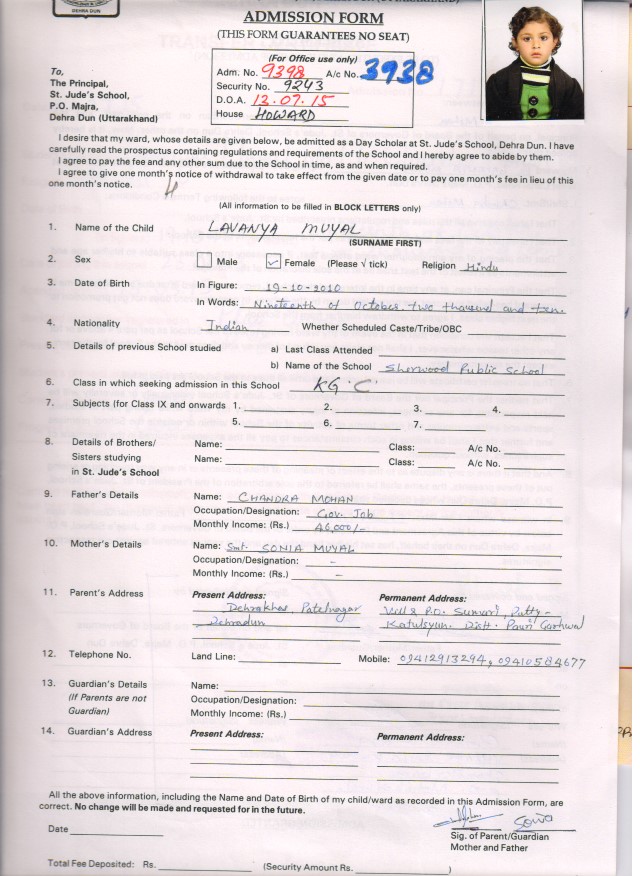 DEHRA DUN
ADMISSION FORM
(THIS FORM GUARANTEES NO SEAT)
(For Office use only)
Adm. No. 9398 A/c No. 3938
Security No. 9243
D.O.A. 12.07.15
House HOWARD
To,
The Principal,
St. Jude's School,
P.O. Majra,
Dehra Dun (Uttarakhand)
I desire that my ward, whose details are given below, be admitted as a Day Scholar at St. Jude's School, Dehra Dun. I have
carefully read the prospectus containing regulations and requirements of the School and I hereby agree to abide by them.
I agree to pay the fee and any other sum due to the School in time, as and when required.
I agree to give one month's notice of withdrawal to take effect from the given date or to pay one month's fee in lieu of this
one month's notice.
(All information to be filled in BLOCK LETTERS only)
1. Name of the Child LAVANYA MUYAL
(SURNAME FIRST)
2. Sex Male Female (Please √ tick) Religion Hindu
3. Date of Birth In Figure: 19-10-2010
In Words: Nineteenth of October two thousand and ten
4. Nationality Indian Whether Scheduled Caste/Tribe/OBC
5. Details of previous School studied a) Last Class Attended
b) Name of the School Sherwood Public School
6. Class in which seeking admission in this School KG 'C'
7. Subjects (for Class IX and onwards 1. 2. 3. 4.
5. 6. 7.
8. Details of Brothers/ Name: Class: A/c No.
Sisters studying Name: Class: A/c No.
in St. Jude's School
9. Father's Details Name: CHANDRA MOHAN
Occupation/Designation: Gov. Job
Monthly Income: (Rs.) 46,000/-
10. Mother's Details Name: Smt. SONIA MUYAL
Occupation/Designation: -
Monthly Income: (Rs.) -
11. Parent's Address Present Address: Permanent Address:
Dehrakhas, Patelnagar Vill & P.O. Sumari, Patty-
Dehradun Katulsyun. Distt. Pauri Garhwal
12. Telephone No. Land Line: Mobile: 09412913294, 09410584677
13. Guardian's Details Name:
(If Parents are not Occupation/Designation:
Guardian) Monthly Income: (Rs.)
14. Guardian's Address Present Address: Permanent Address:
All the above information, including the Name and Date of Birth of my child/ward as recorded in this Admission Form, are
correct. No change will be made and requested for in the future.
Sonia
Date Sig. of Parent/Guardian
Mother and Father
Total Fee Deposited: Rs. (Security Amount Rs. )